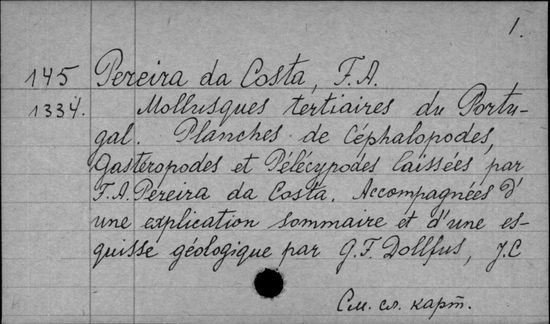 1.
145 Pereira da Costa, F.A.
1334. Mollusques tertiaires du Portu-
gal. Planches de Céphalopodes,
Gastéropodes et Pélécypodes laissées par
F.A. Pereira da Costa. Accompagnées d'
une explication sommaire et d'une es-
quisse géologique par G.F. Dollfus, J.C
См. сл. карт.